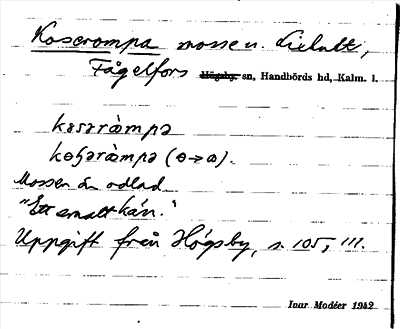 Koserompa mosse u. Lixhult,
Fågelfors Högsby sn, Handbörds hd, Kalm. l.
Mossen än odlad
"Ett smalt kärr."
Uppgift från Högsby, s. 105, 111.
Ivar Modéer 1942